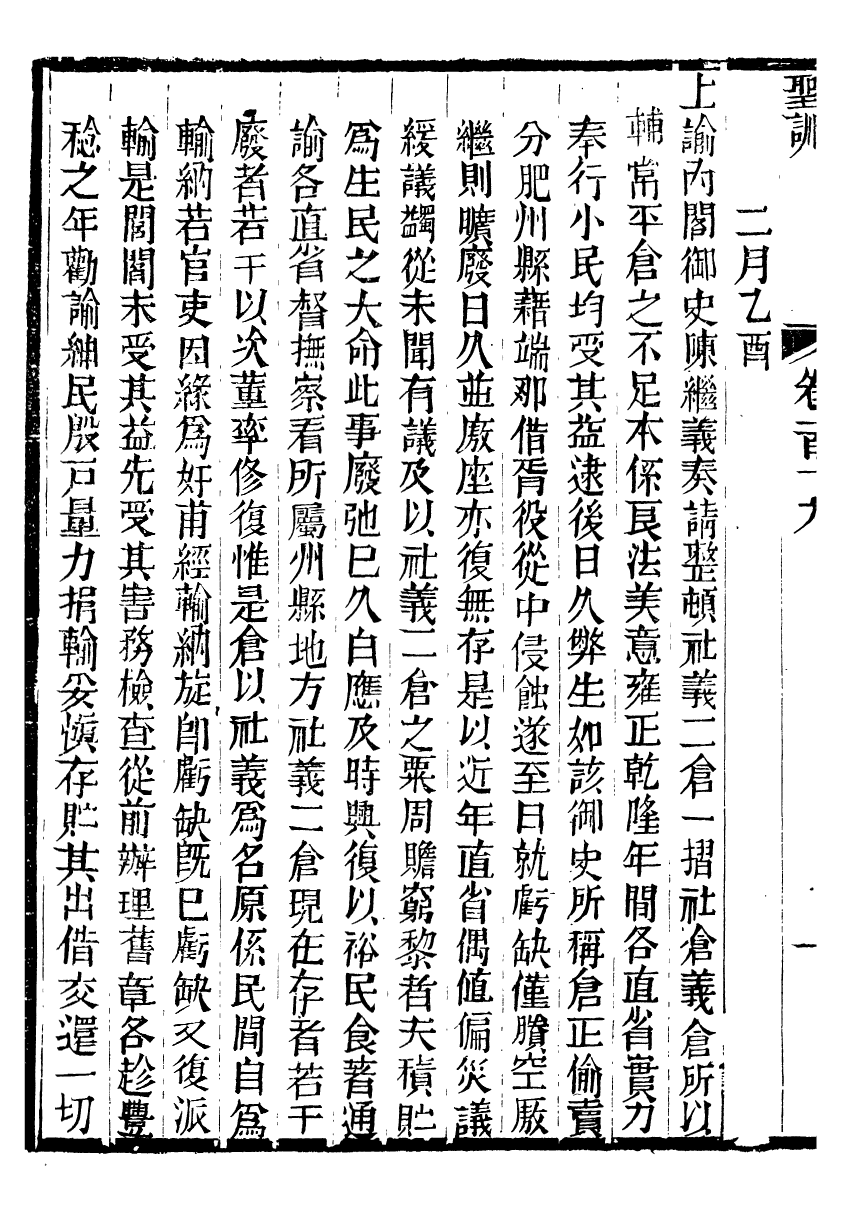 聖訓 卷一百十九 一
二月乙酉
上諭內閣御史陳繼義奏請整頓社義二倉一摺社倉義倉所以
輔常平倉之不足本係良法美意雍正乾隆年間各直省實力
奉行小民均受其益逮後日久弊生如該御史所稱倉正偷賣
分肥州縣藉端那借胥役從中侵蝕遂至日就虧缺僅賸空廒
繼則曠廢日久並廒座亦復無存是以近年直省偶值偏災議
緩議蠲從未聞有議及以社義二倉之粟周贍窮黎者夫積貯
為生民之大命此事廢弛已久自應及時興復以裕民食著通
諭各直省督撫察看所屬州縣地方社義二倉現在存者若干
廢者若干以次董率修復惟是倉以社義為名原係民間自為
輸納若官吏因緣為奸甫經輸納旋即虧缺既已虧缺又復派
輸是閭閻未受其益先受其害務檢查從前辦理舊章各趁豐
稔之年勸諭紳民殷戶量力捐輸妥慎存貯其出借交還一切